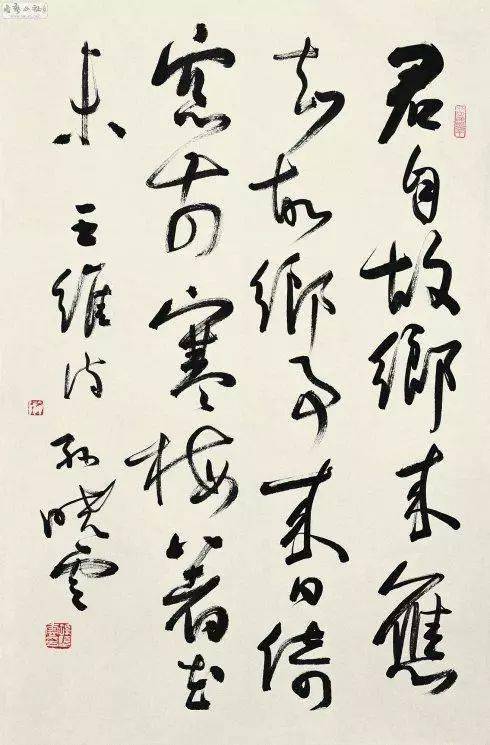 君自故鄉來應
知故鄉事來日綺
窓前寒梅着花
未 王維詩 孫曉雲